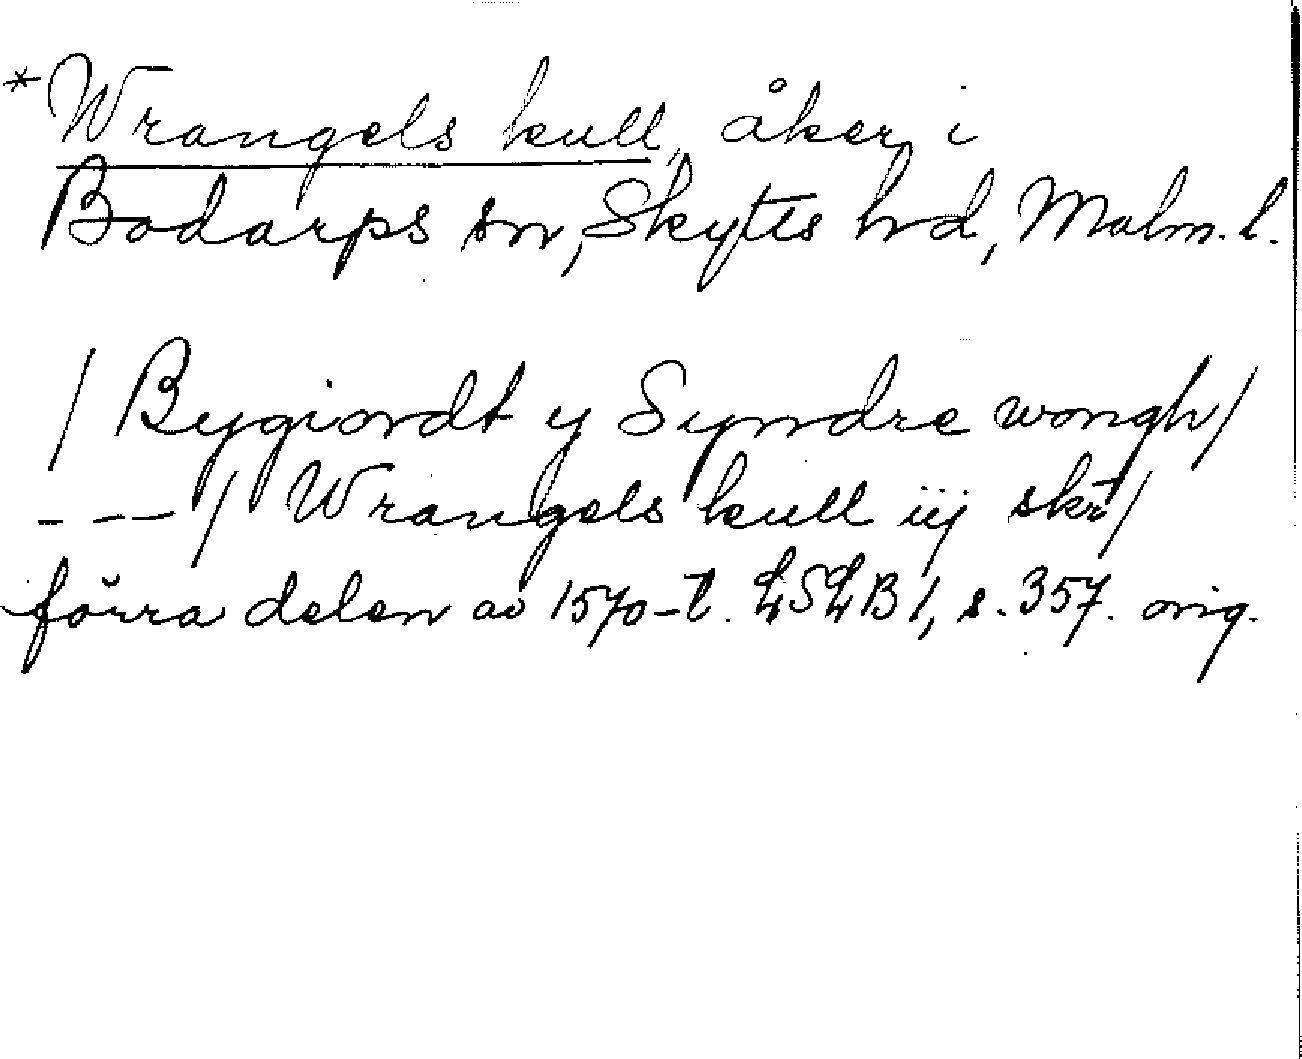 *Wrangels kull, åker i
Bodarps sn, Skytts hrd, Malm. l.
/ Bygiordt y Syndre wongh /
- - - / Wrangels kull iij skr /
förra delen av 1570-t. LSLB 1, s. 357. orig.